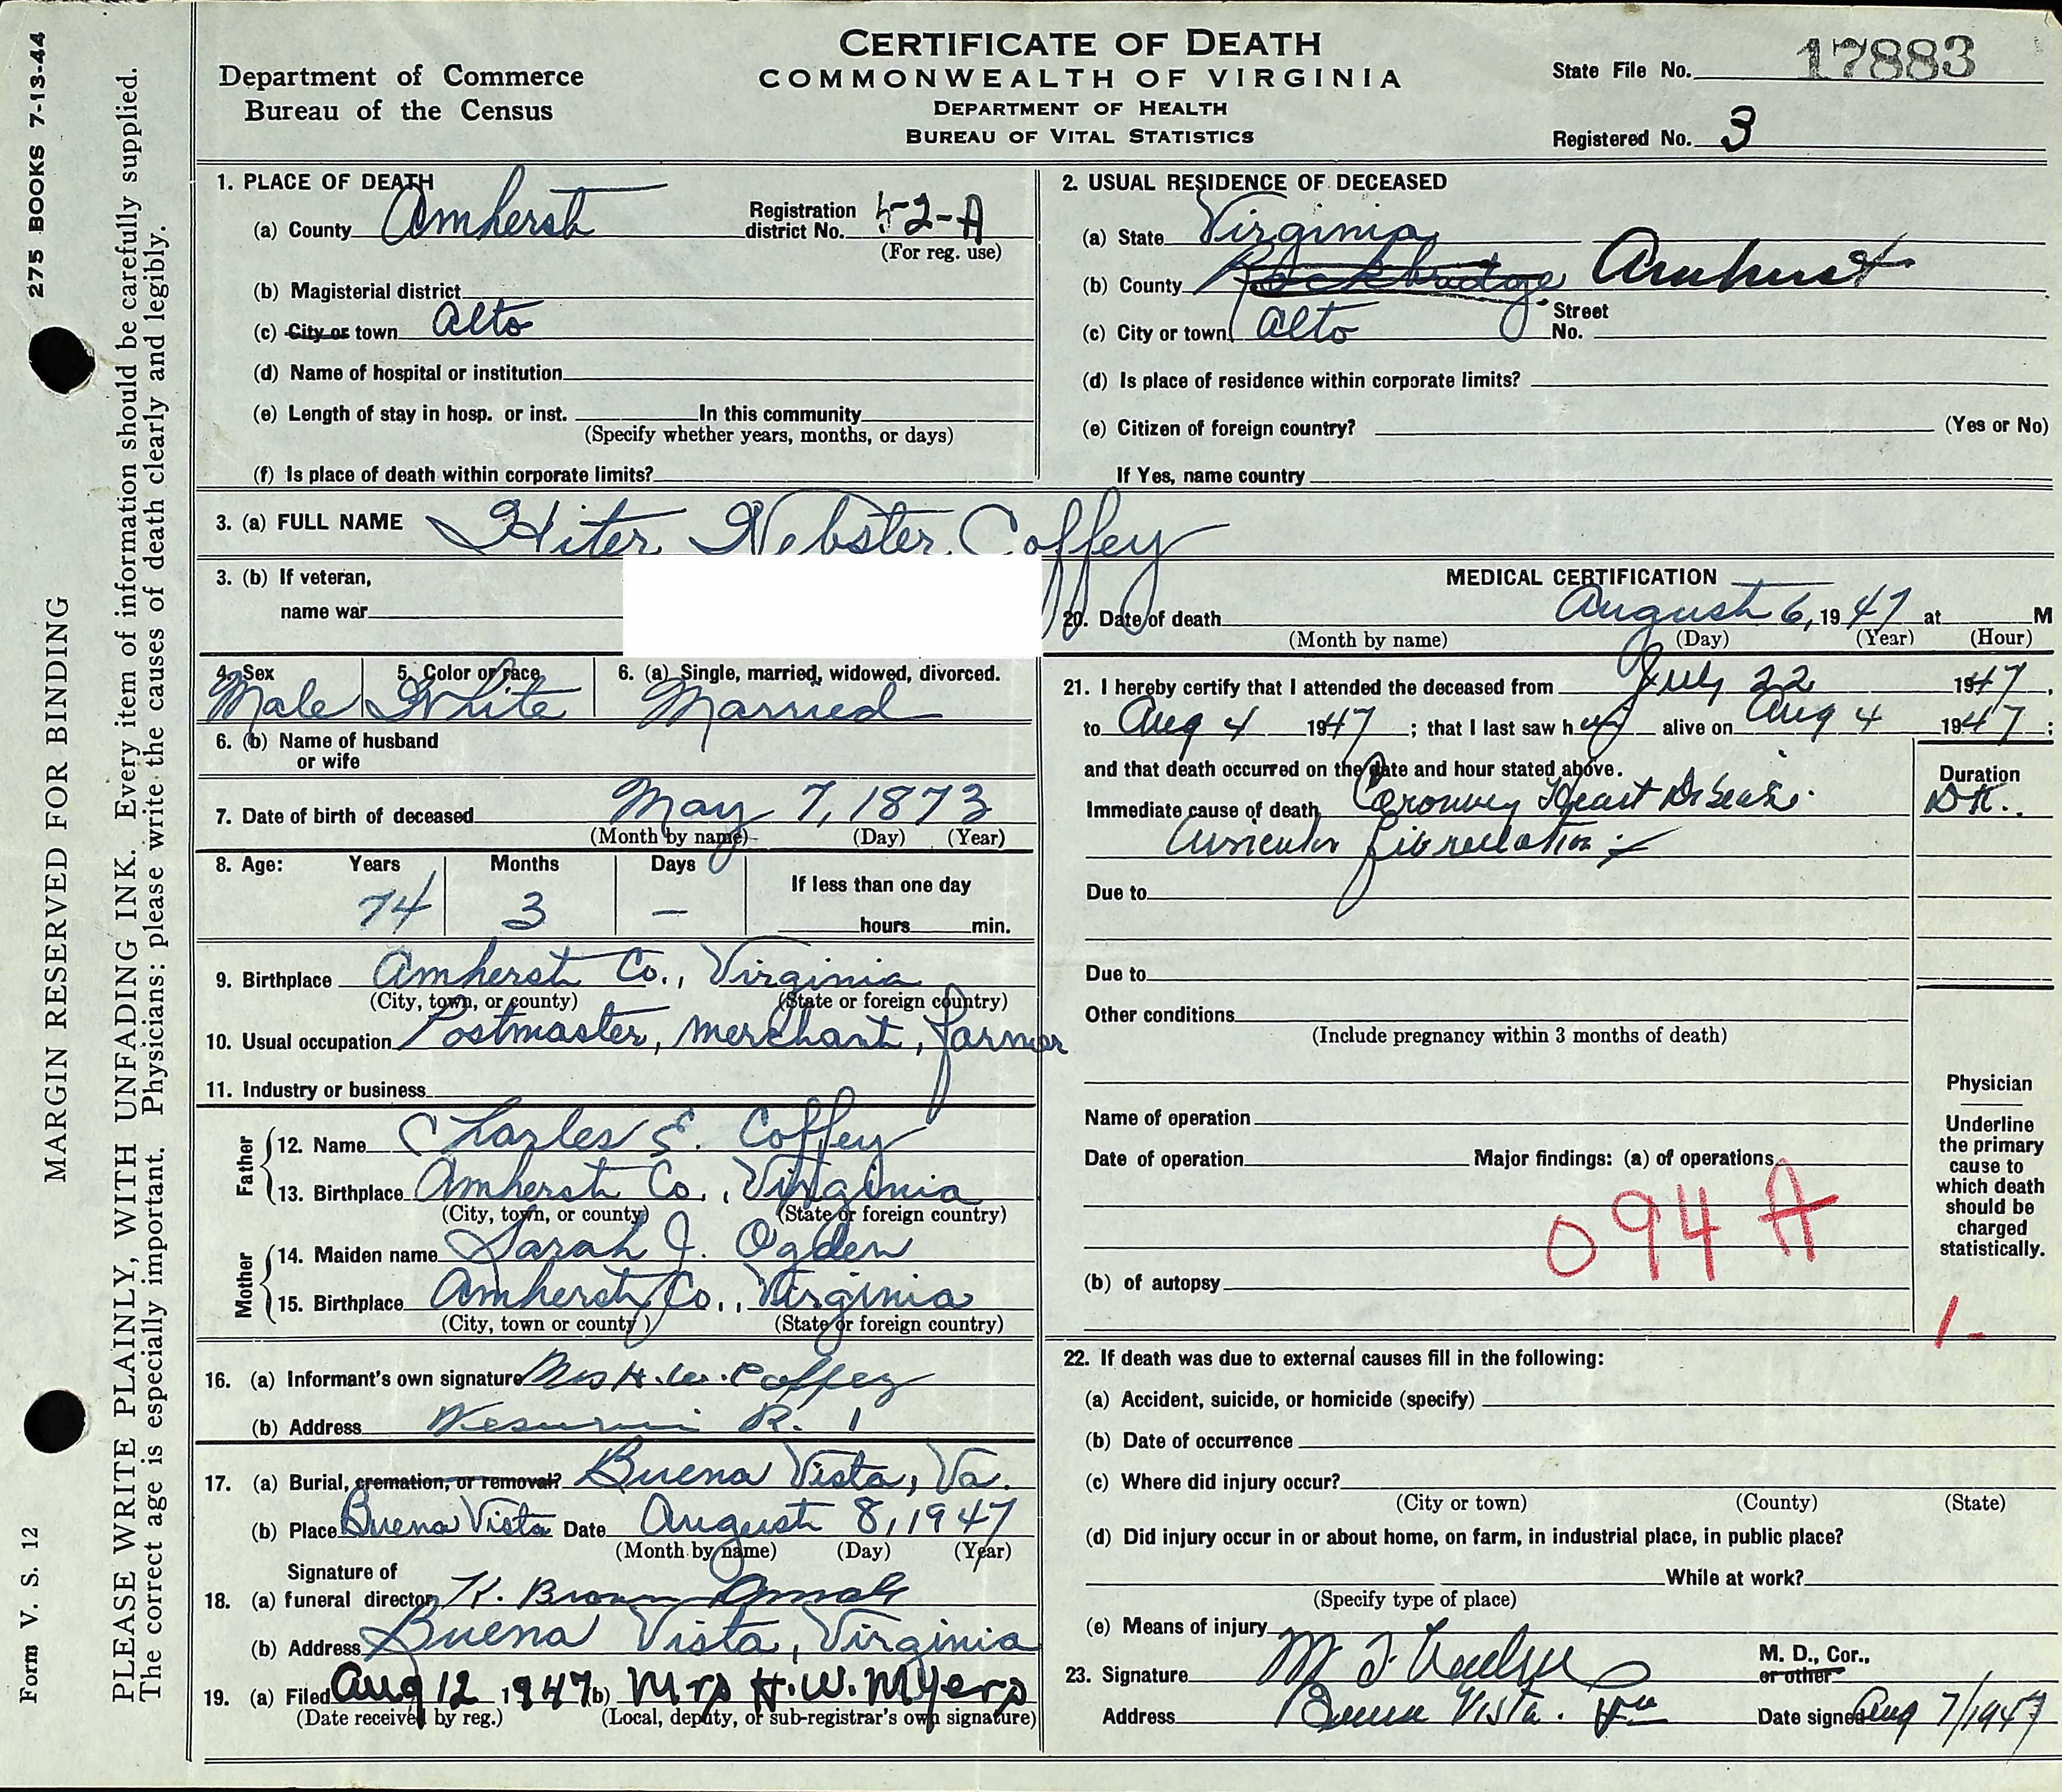 275 BOOKS 7-13-44
MARGIN RESERVED FOR BINDING
Form V. S. 12
PLEASE WRITE PLAINLY, WITH UNFADING INK. Every item of information should be carefully supplied.
The correct age is especially important. Physicians: please write the causes of death clearly and legibly.
Department of Commerce
Bureau of the Census
CERTIFICATE OF DEATH
COMMONWEALTH OF VIRGINIA
DEPARTMENT OF HEALTH
BUREAU OF VITAL STATISTICS
State File No. 17883
Registered No. 3
1. PLACE OF DEATH
(a) County Amherst Registration district No. 52-A
(For reg. use)
(b) Magisterial district
(c) City or town Alto
(d) Name of hospital or institution
(e) Length of stay in hosp. or inst. In this community
(Specify whether years, months, or days)
(f) Is place of death within corporate limits?
2. USUAL RESIDENCE OF DECEASED
(a) State Virginia
(b) County Rockbridge Amherst
(c) City or town Alto Street No.
(d) Is place of residence within corporate limits?
(e) Citizen of foreign country? (Yes or No)
If Yes, name country
3. (a) FULL NAME Hiter Webster Coffey
3. (b) If veteran,
name war
4. Sex 5. Color or race 6. (a) Single, married, widowed, divorced.
Male White Married
6. (b) Name of husband
or wife
7. Date of birth of deceased May 7, 1873
(Month by name) (Day) (Year)
8. Age: Years Months Days If less than one day
74 3 — hours min.
9. Birthplace Amherst Co., Virginia
(City, town, or county) (State or foreign country)
10. Usual occupation Postmaster, Merchant, farmer
11. Industry or business
Father
12. Name Charles E. Coffey
13. Birthplace Amherst Co., Virginia
(City, town, or county) (State or foreign country)
Mother
14. Maiden name Sarah J. Ogden
15. Birthplace Amherst Co., Virginia
(City, town or county) (State or foreign country)
16. (a) Informant's own signature Mrs H. W. Coffey
(b) Address R. 1
17. (a) Burial, cremation, or removal? Buena Vista, Va.
(b) Place Buena Vista Date August 8, 1947
(Month by name) (Day) (Year)
Signature of
18. (a) funeral director K. Brown
(b) Address Buena Vista, Virginia
19. (a) Filed Aug 12 1947 (b) Mrs H. W. Myers
(Date received by reg.) (Local, deputy, or sub-registrar's own signature)
MEDICAL CERTIFICATION
20. Date of death August 6, 1947 at M
(Month by name) (Day) (Year) (Hour)
21. I hereby certify that I attended the deceased from July 22 1947,
to Aug 4 1947; that I last saw him alive on Aug 4 1947;
and that death occurred on the date and hour stated above.
Duration
Immediate cause of death Coronary Heart Disease. D.K.
Auricular fibrillation
Due to
Due to
Other conditions
(Include pregnancy within 3 months of death)
Name of operation
Date of operation Major findings: (a) of operations
094 A
(b) of autopsy
Physician
Underline
the primary
cause to
which death
should be
charged
statistically.
1-
22. If death was due to external causes fill in the following:
(a) Accident, suicide, or homicide (specify)
(b) Date of occurrence
(c) Where did injury occur?
(City or town) (County) (State)
(d) Did injury occur in or about home, on farm, in industrial place, in public place?
While at work?
(Specify type of place)
(e) Means of injury
23. Signature M. D., Cor., or other
Address Buena Vista. Va Date signed Aug 7/1947